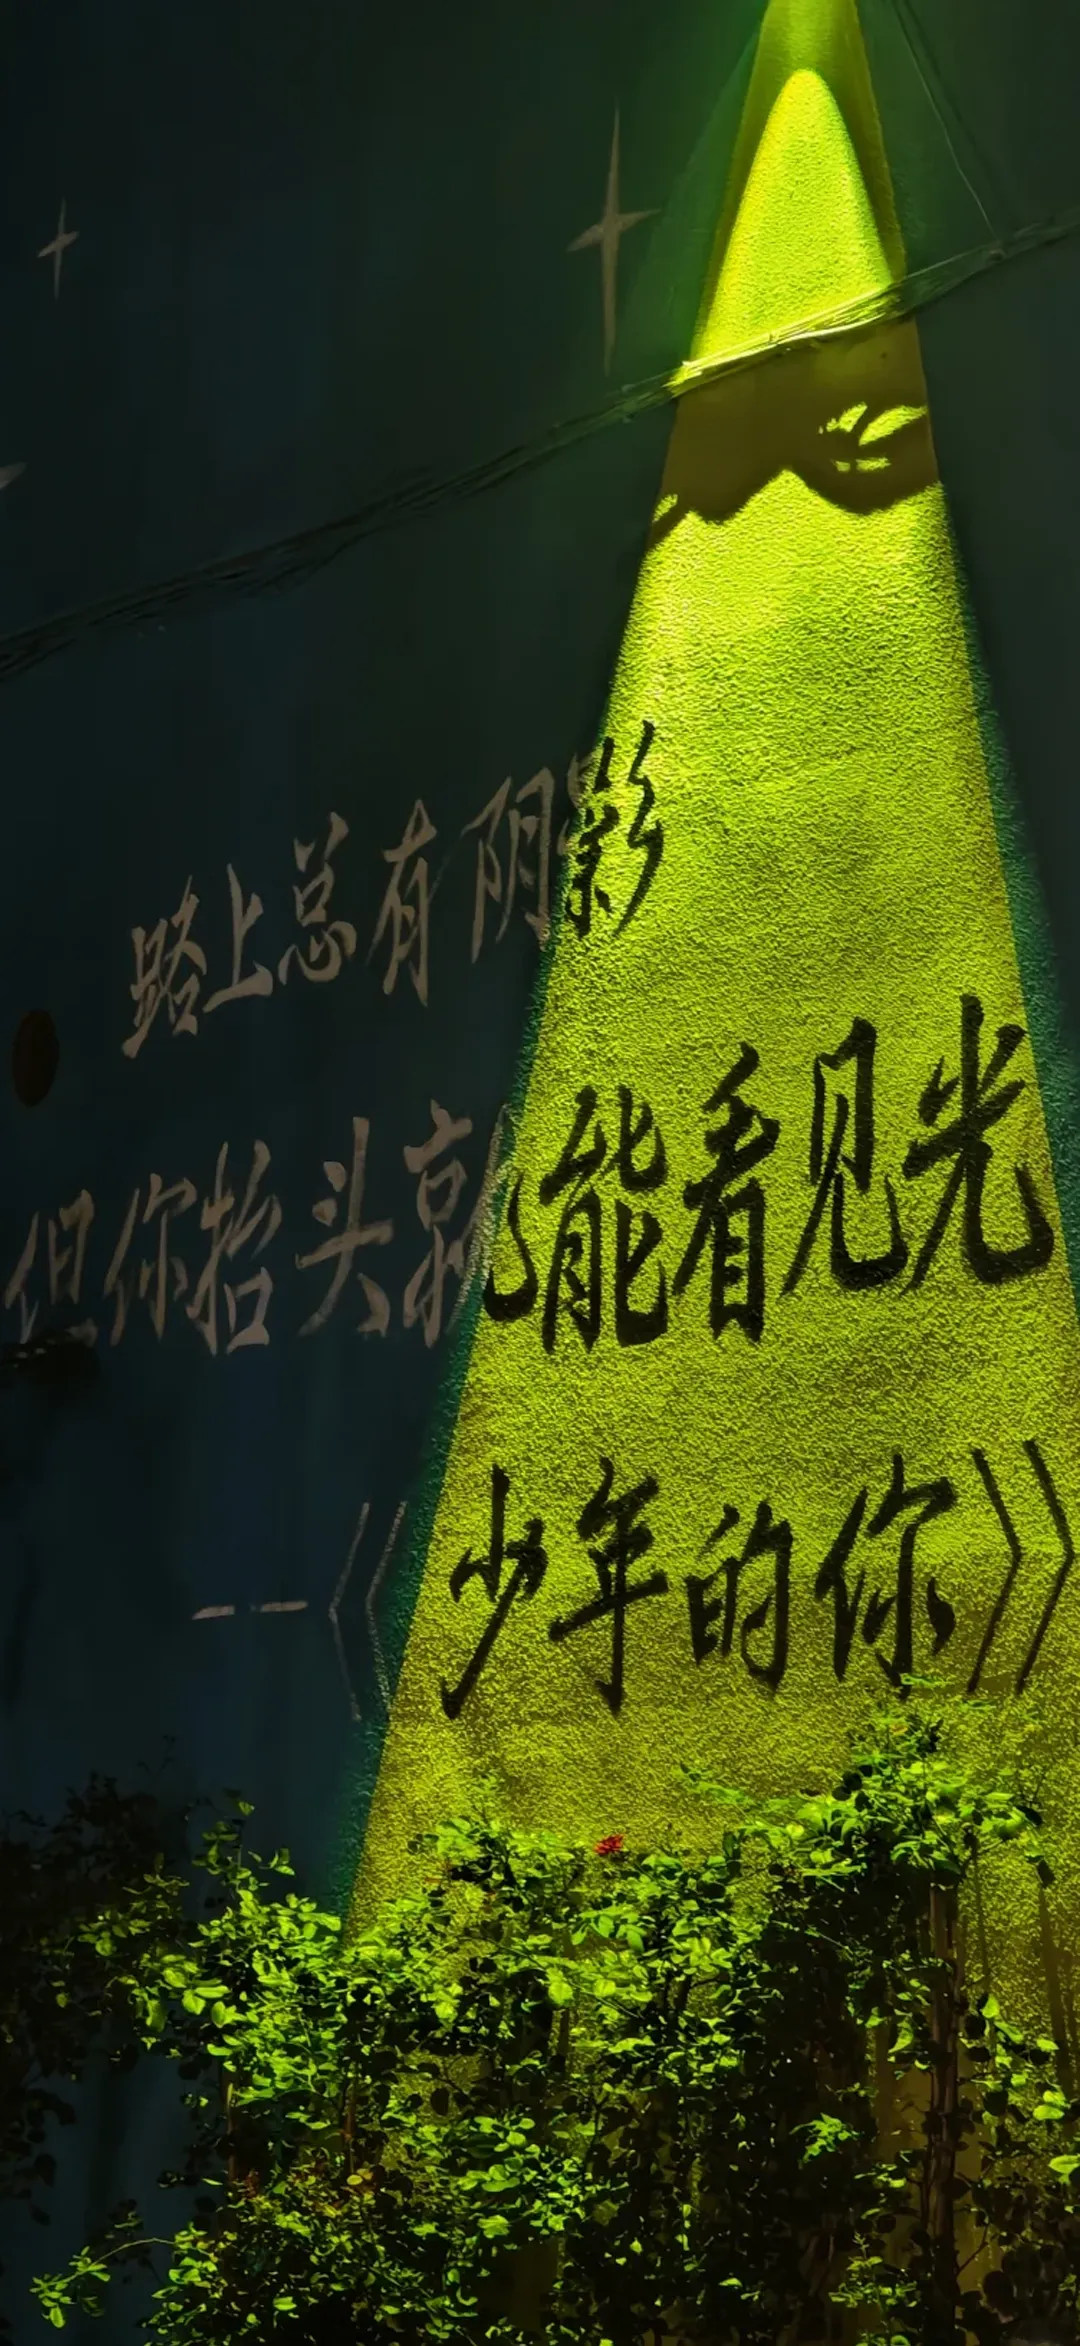 路上总有阴影
但你抬头就能看见光
——《少年的你》